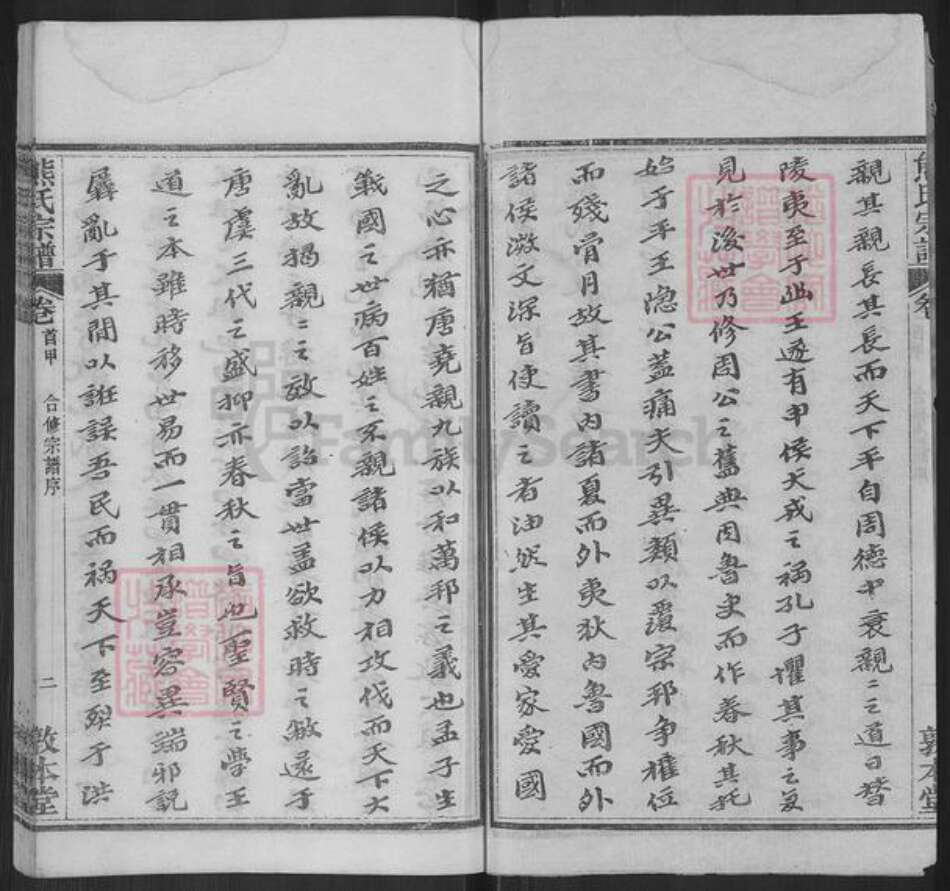 親其親長其長而天下平自周德中衰親〻之道日替
陵夷至于幽王遂有申侯犬戎之禍孔子懼其事之复
見於後世乃修周公之舊典因魯史而作春秋其托
始于平王隱公蓋痛夫引異類以覆宗邦爭權位
而殘骨月故其書內諸夏而外夷狄內魯國而外
諸侯微文深旨使讀之者油然生其愛家愛國
之心亦猶唐堯親九族以和萬邦之義也孟子生
戰國之世病百姓之不親諸侯以力相攻伐而天下大
亂故揭親〻之效以詔當世蓋欲救時之敝還于
唐虞三代之盛抑亦春秋之旨也聖賢之學王
道之本雖時移世易而一貫相承豈容異端邪說
羼亂于其間以誑誤吾民而禍天下至烈于洪
熊氏宗譜 卷 首甲 合修宗譜序 二 敦本堂
熊氏宗譜 卷 敦本堂
FamilySearch